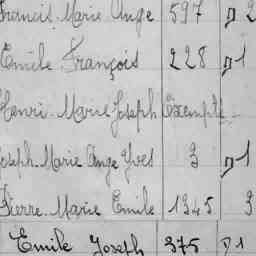 Francis Marie Ange 597 n 2
Emile François 228 n 1
Henri Marie Joseph Exempté
Joseph Marie Ange Yves 3 n 1
Pierre Marie Emile 1345 3
Emile Joseph 375 n 1